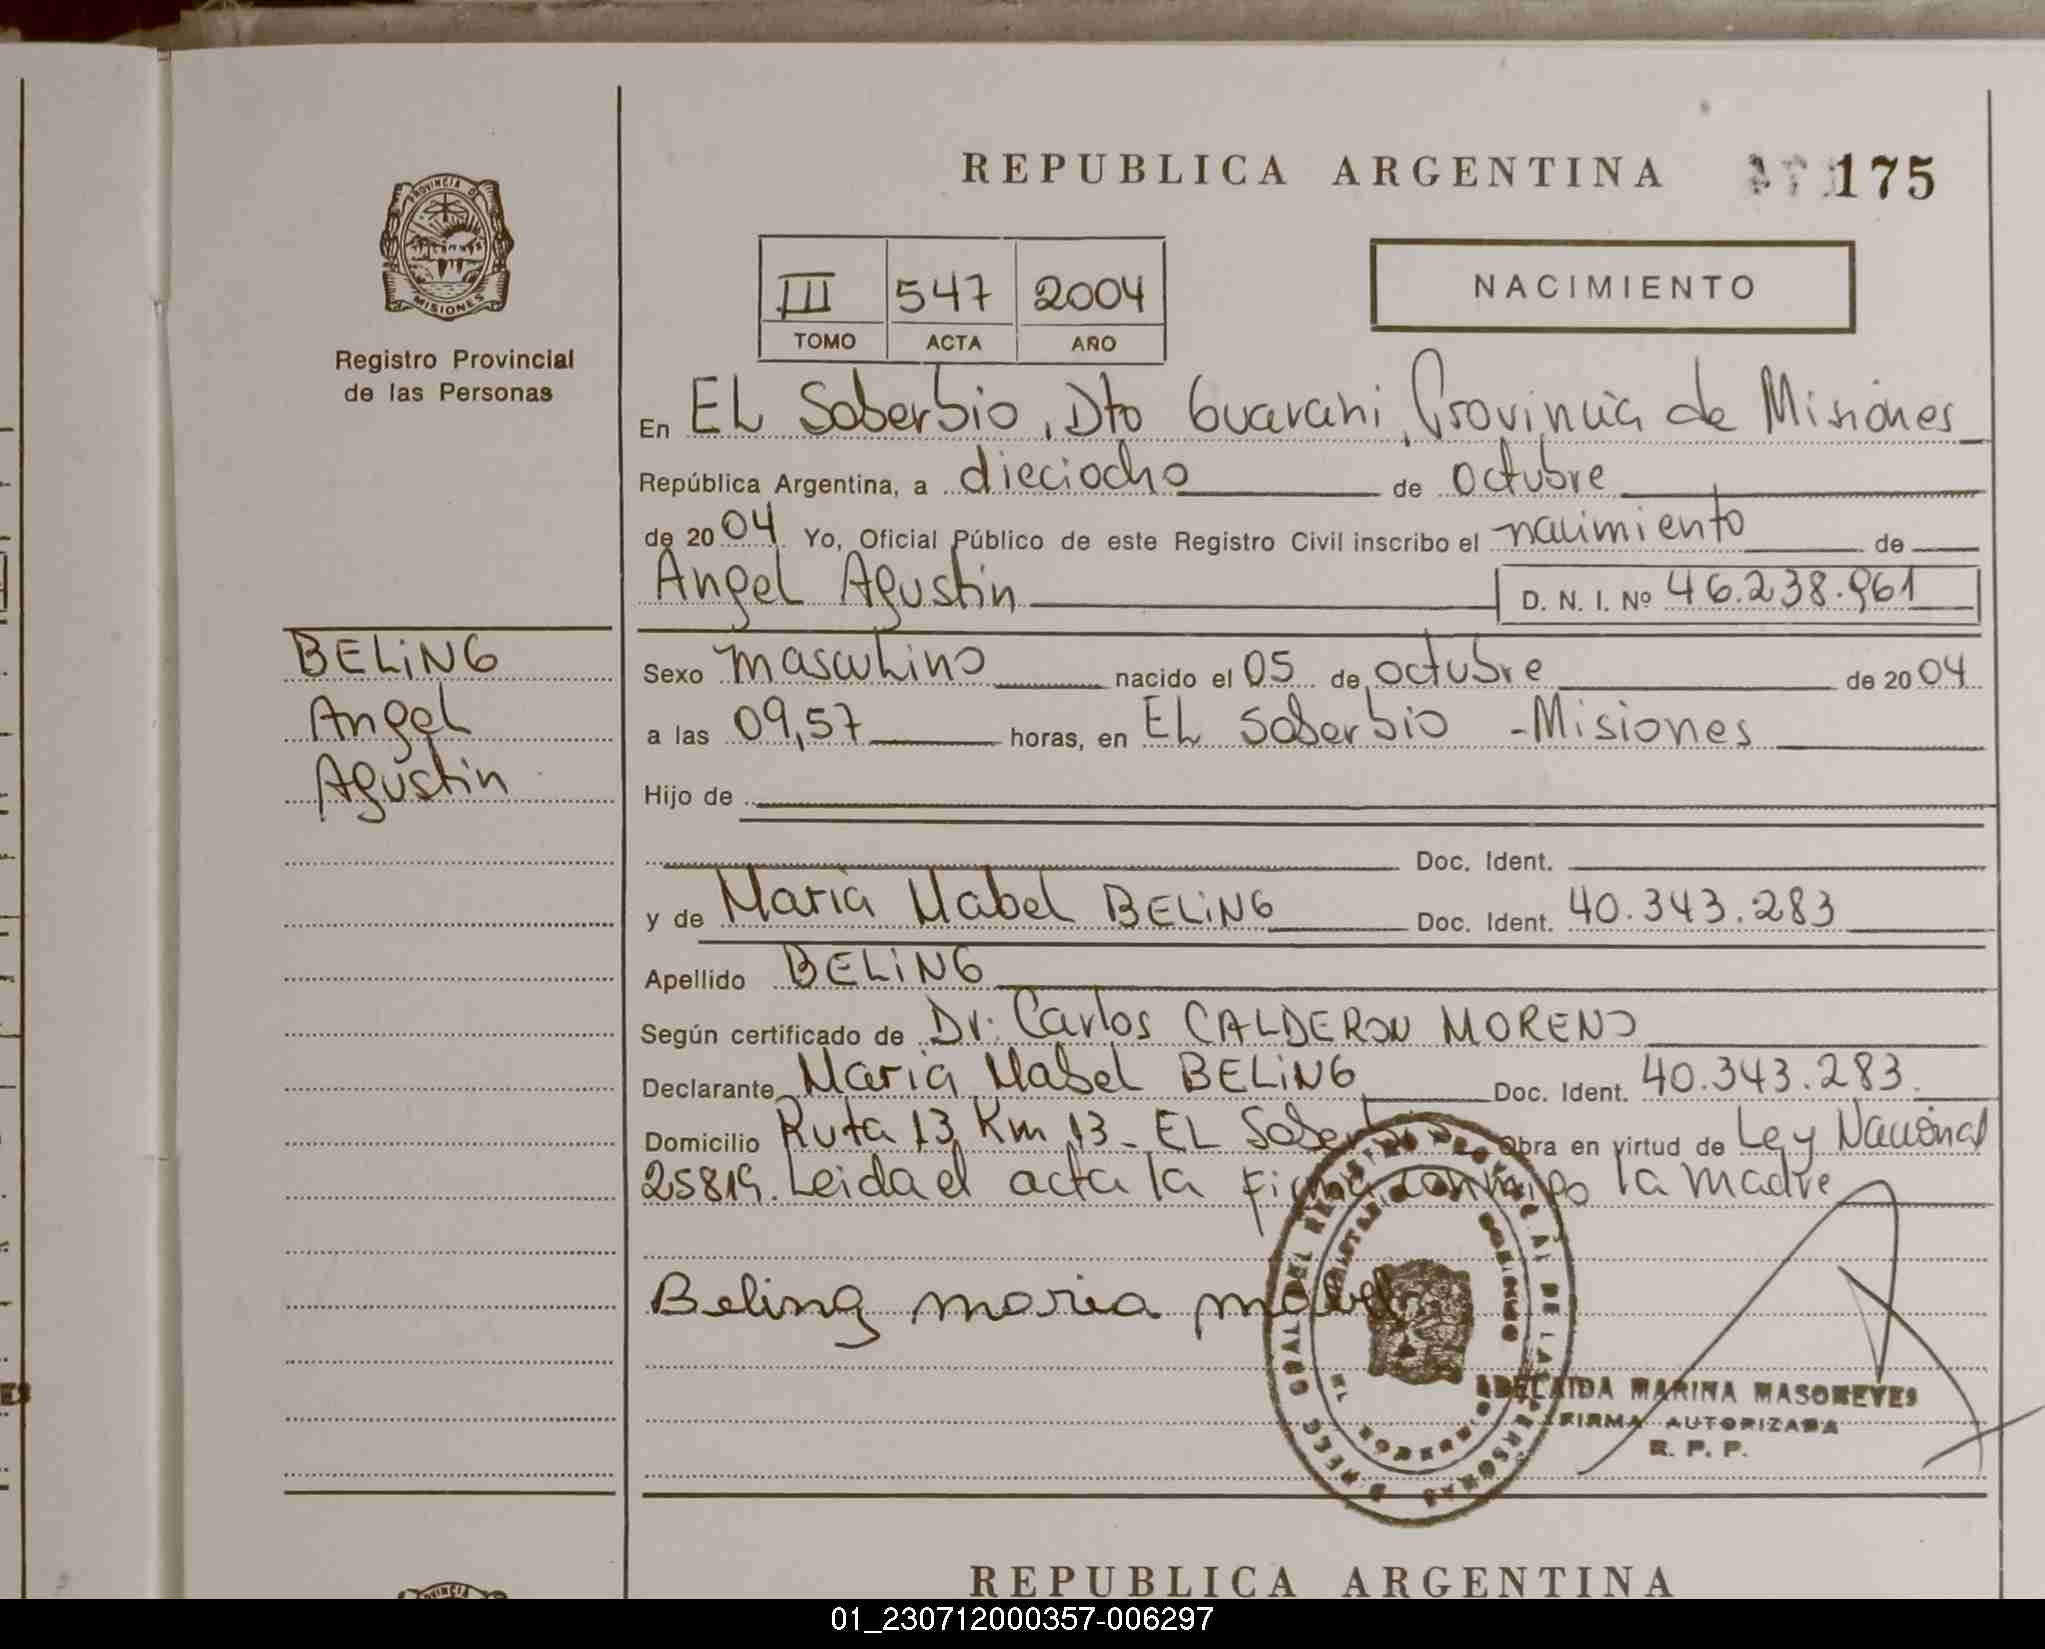 REPUBLICA ARGENTINA 175
PROVINCIA DE
MISIONES
Registro Provincial
de las Personas
III 547 2004
TOMO ACTA AÑO
NACIMIENTO
En EL Soberbio, Dto Guarani, Provincia de Misiones
República Argentina, a dieciocho de octubre
de 2004 Yo, Oficial Público de este Registro Civil inscribo el nacimiento de
Angel Agustin D. N. I. Nº 46.238.961
BELING
Angel
Agustin
Sexo masculino nacido el 05 de octubre de 2004
a las 09,57 horas, en EL Soberbio - Misiones
Hijo de
Doc. Ident.
y de Maria Mabel BELING Doc. Ident. 40.343.283
Apellido BELING
Según certificado de Dr. Carlos CALDERON MORENO
Declarante Maria Mabel BELING Doc. Ident. 40.343.283
Domicilio Ruta 13 Km 13 - EL Soberbio Obra en virtud de Ley Nacional
25819. Leida el acta la firma conmigo la madre
Beling maria mabel
ADELAIDA MARINA MASONEYES
FIRMA AUTORIZADA
R. P. P.
REPUBLICA ARGENTINA
01_230712000357-006297